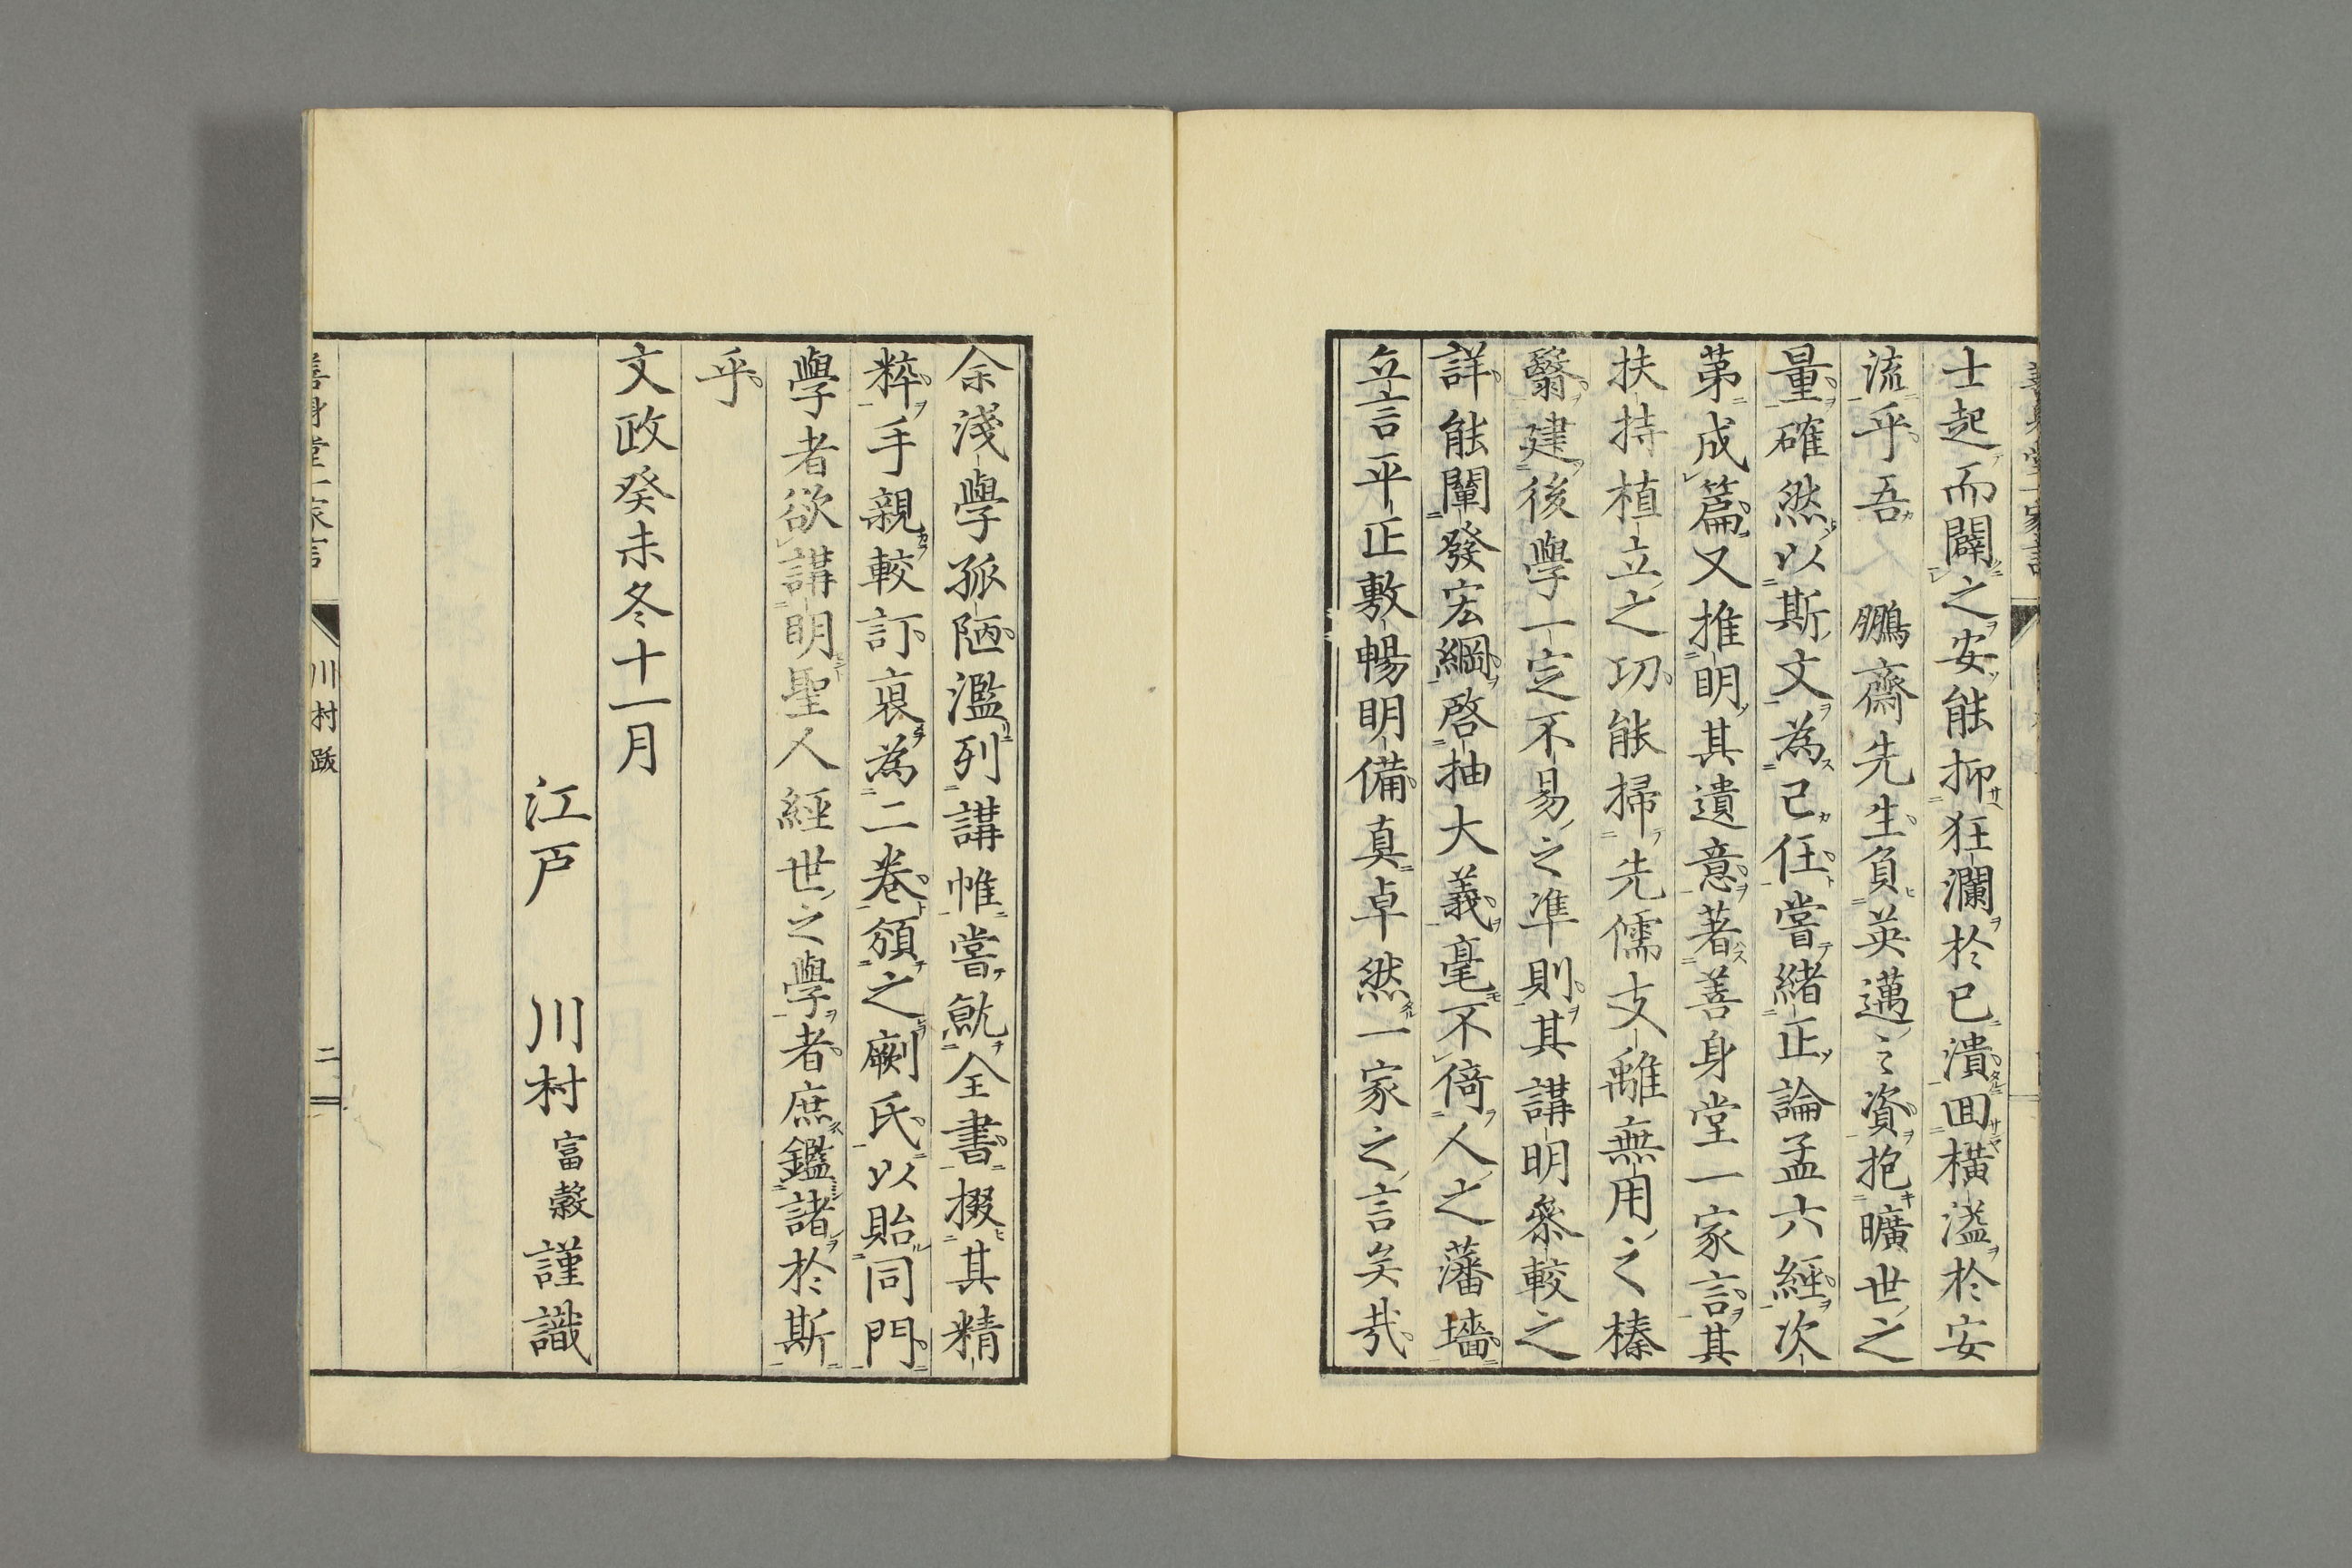 士起而闢之安能抑狂瀾於已潰囬橫溢於安
流乎吾　鵬齋先生負英邁之資抱曠世之
量確然以斯文為己任嘗緒正論孟六經次
第成篇又推明其遺意著善身堂一家言其
扶持植立之功能掃先儒支離無用之榛
翳建後學一定不易之準則其講明叅較之
詳能闡發宏綱啓抽大義毫不倚人之藩墻
立言平正敷暢明備真卓然一家之言矣哉
余淺學孤陋濫列講帷嘗就全書掇其精
粹手親較訂裒為二卷頒之劂氏以貽同門
學者欲講明聖人經世之學者庶鑑諸於斯
乎
文政癸未冬十一月
江戸　川村富穀謹識
善身堂一家言　川村跋　二